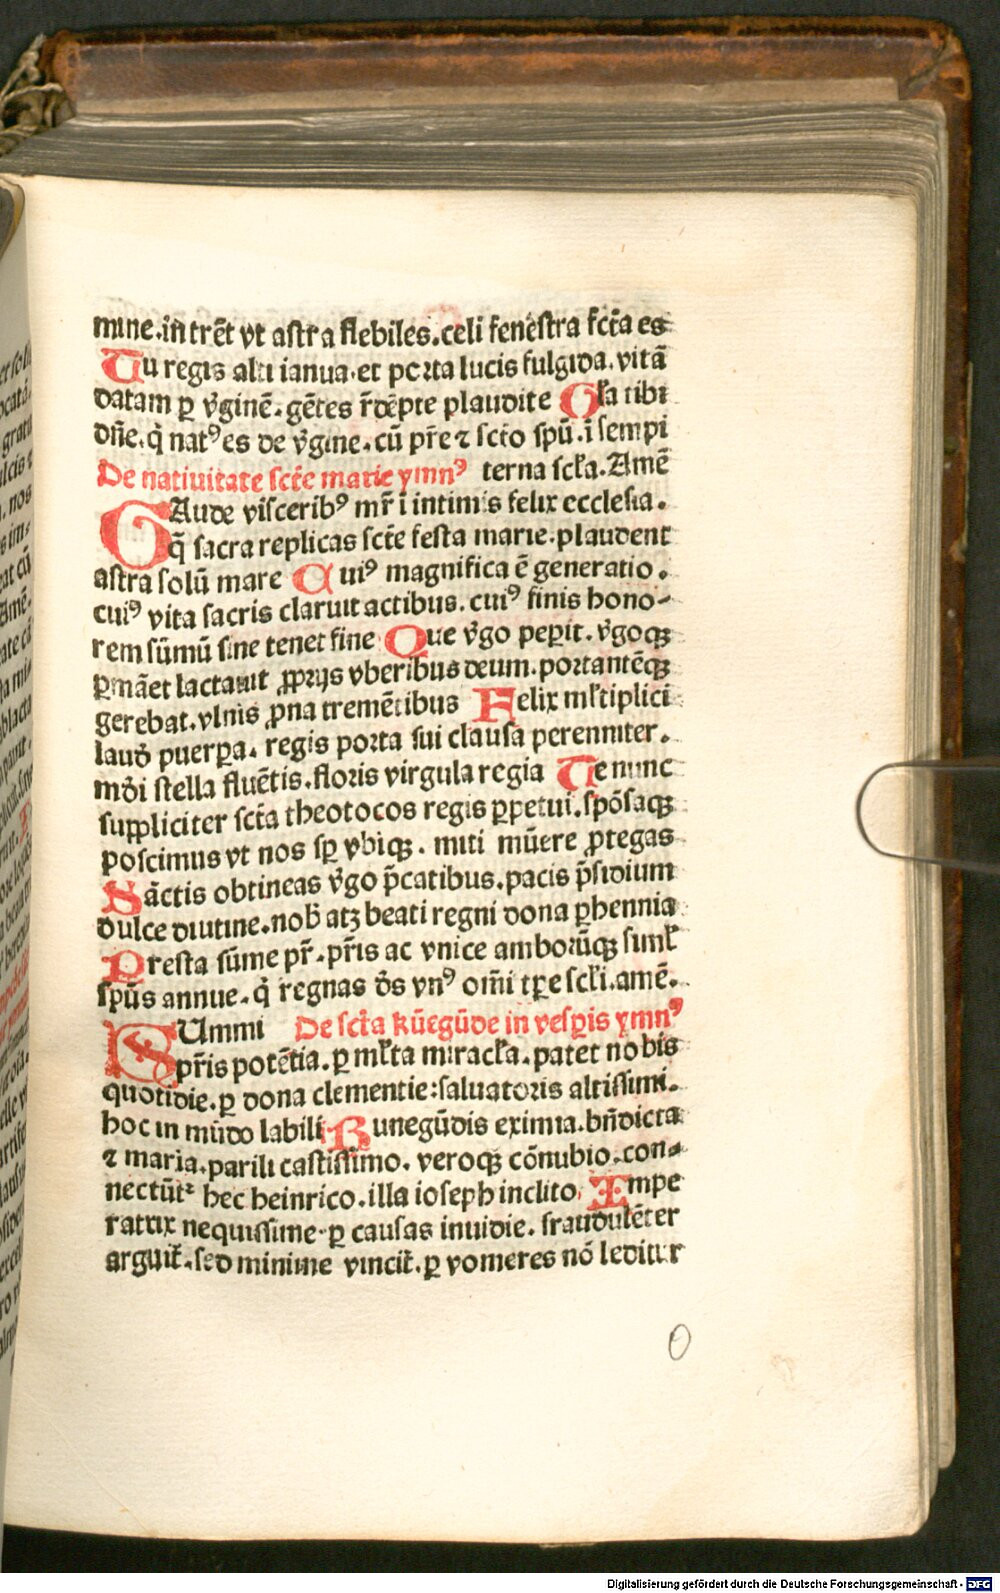 mine.intrēt vt astra flebiles.celi fenestra fcta es
Tu regis alti ianua.et porta lucis fulgida.vitā
datam ꝑ v̄ginē.gētes r̄dēpte plaudite Gl̄a tibi
dn̄e.q̄ natꝰ es de v̄gine.cū pr̄e ⁊ sctō spū.ī sempi
De natiuitate sctē marie ymnꝰ terna scl̄a.Amē
GAude viscerib⁹ mr̄ ī intimis felix ecclesia.
q̄ sacra replicas sctē festa marie.plaudent
astra solū mare Cuiꝰ magnifica ē generatio.
cuiꝰ vita sacris claruit actibus.cuiꝰ finis hono-
rem sūmū sine tenet fine Que v̄go peꝑit.v̄goqꝫ
ꝑmāet lactauit ꝓprijs vberibus deum.portantēqꝫ
gerebat.vlnis ꝓna tremētibus Felix ml̄tiplici
laud̄ puerꝑa.regis porta sui clausa perenniter.
mōi stella fluētis.floris virgula regia Te nunc
suppliciter sctā theotocos regis ꝑpetui.spōsaqꝫ
poscimus vt nos sꝑ vbiqꝫ.miti mūere ꝓtegas
Sāctis obtineas v̄go p̄catibus.pacis p̄sidium
dulce diutine.nob̄ atqꝫ beati regni dona ꝑhennia
Presta sūme pr̄.pr̄is ac vnice amborūqꝫ siml̄
spūs annue.q̄ regnas d̄s vnꝰ om̄i tꝑe scl̄i.amē.
SUmmi De sctā kūegūde in vesꝑis ymnꝰ
pr̄is potētia.ꝑ ml̄ta miracl̄a.patet nobis
quotidie.ꝑ dona clementie:saluatoris altissimi.
hoc in mūdo labili Kunegūdis eximia.bn̄dicta
⁊ maria.parili castissimo.veroqꝫ cōnubio.con-
nectūt᷑ hec heinrico.illa ioseph inclito. Impe
ratrix nequissime.ꝑ causas inuidie.fraudulēter
arguit̄.sed minime vincit̄.ꝑ vomeres nō leditur
0
Digitalisierung gefördert durch die Deutsche Forschungsgemeinschaft - DFG